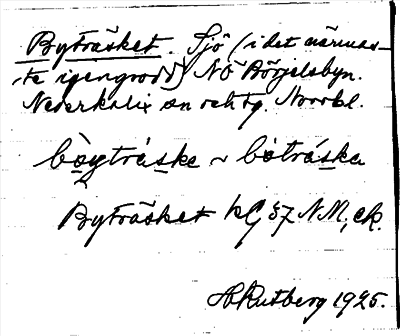 Byträsket. Sjö (i det närmas-
te igengrodd) NÖ Börjelsbyn.
Nederkalix sn och tg. Norrbl.
bòyträske ~ bòträska
Byträsket kG 37 N.M., ek.
H Rutberg 1925.